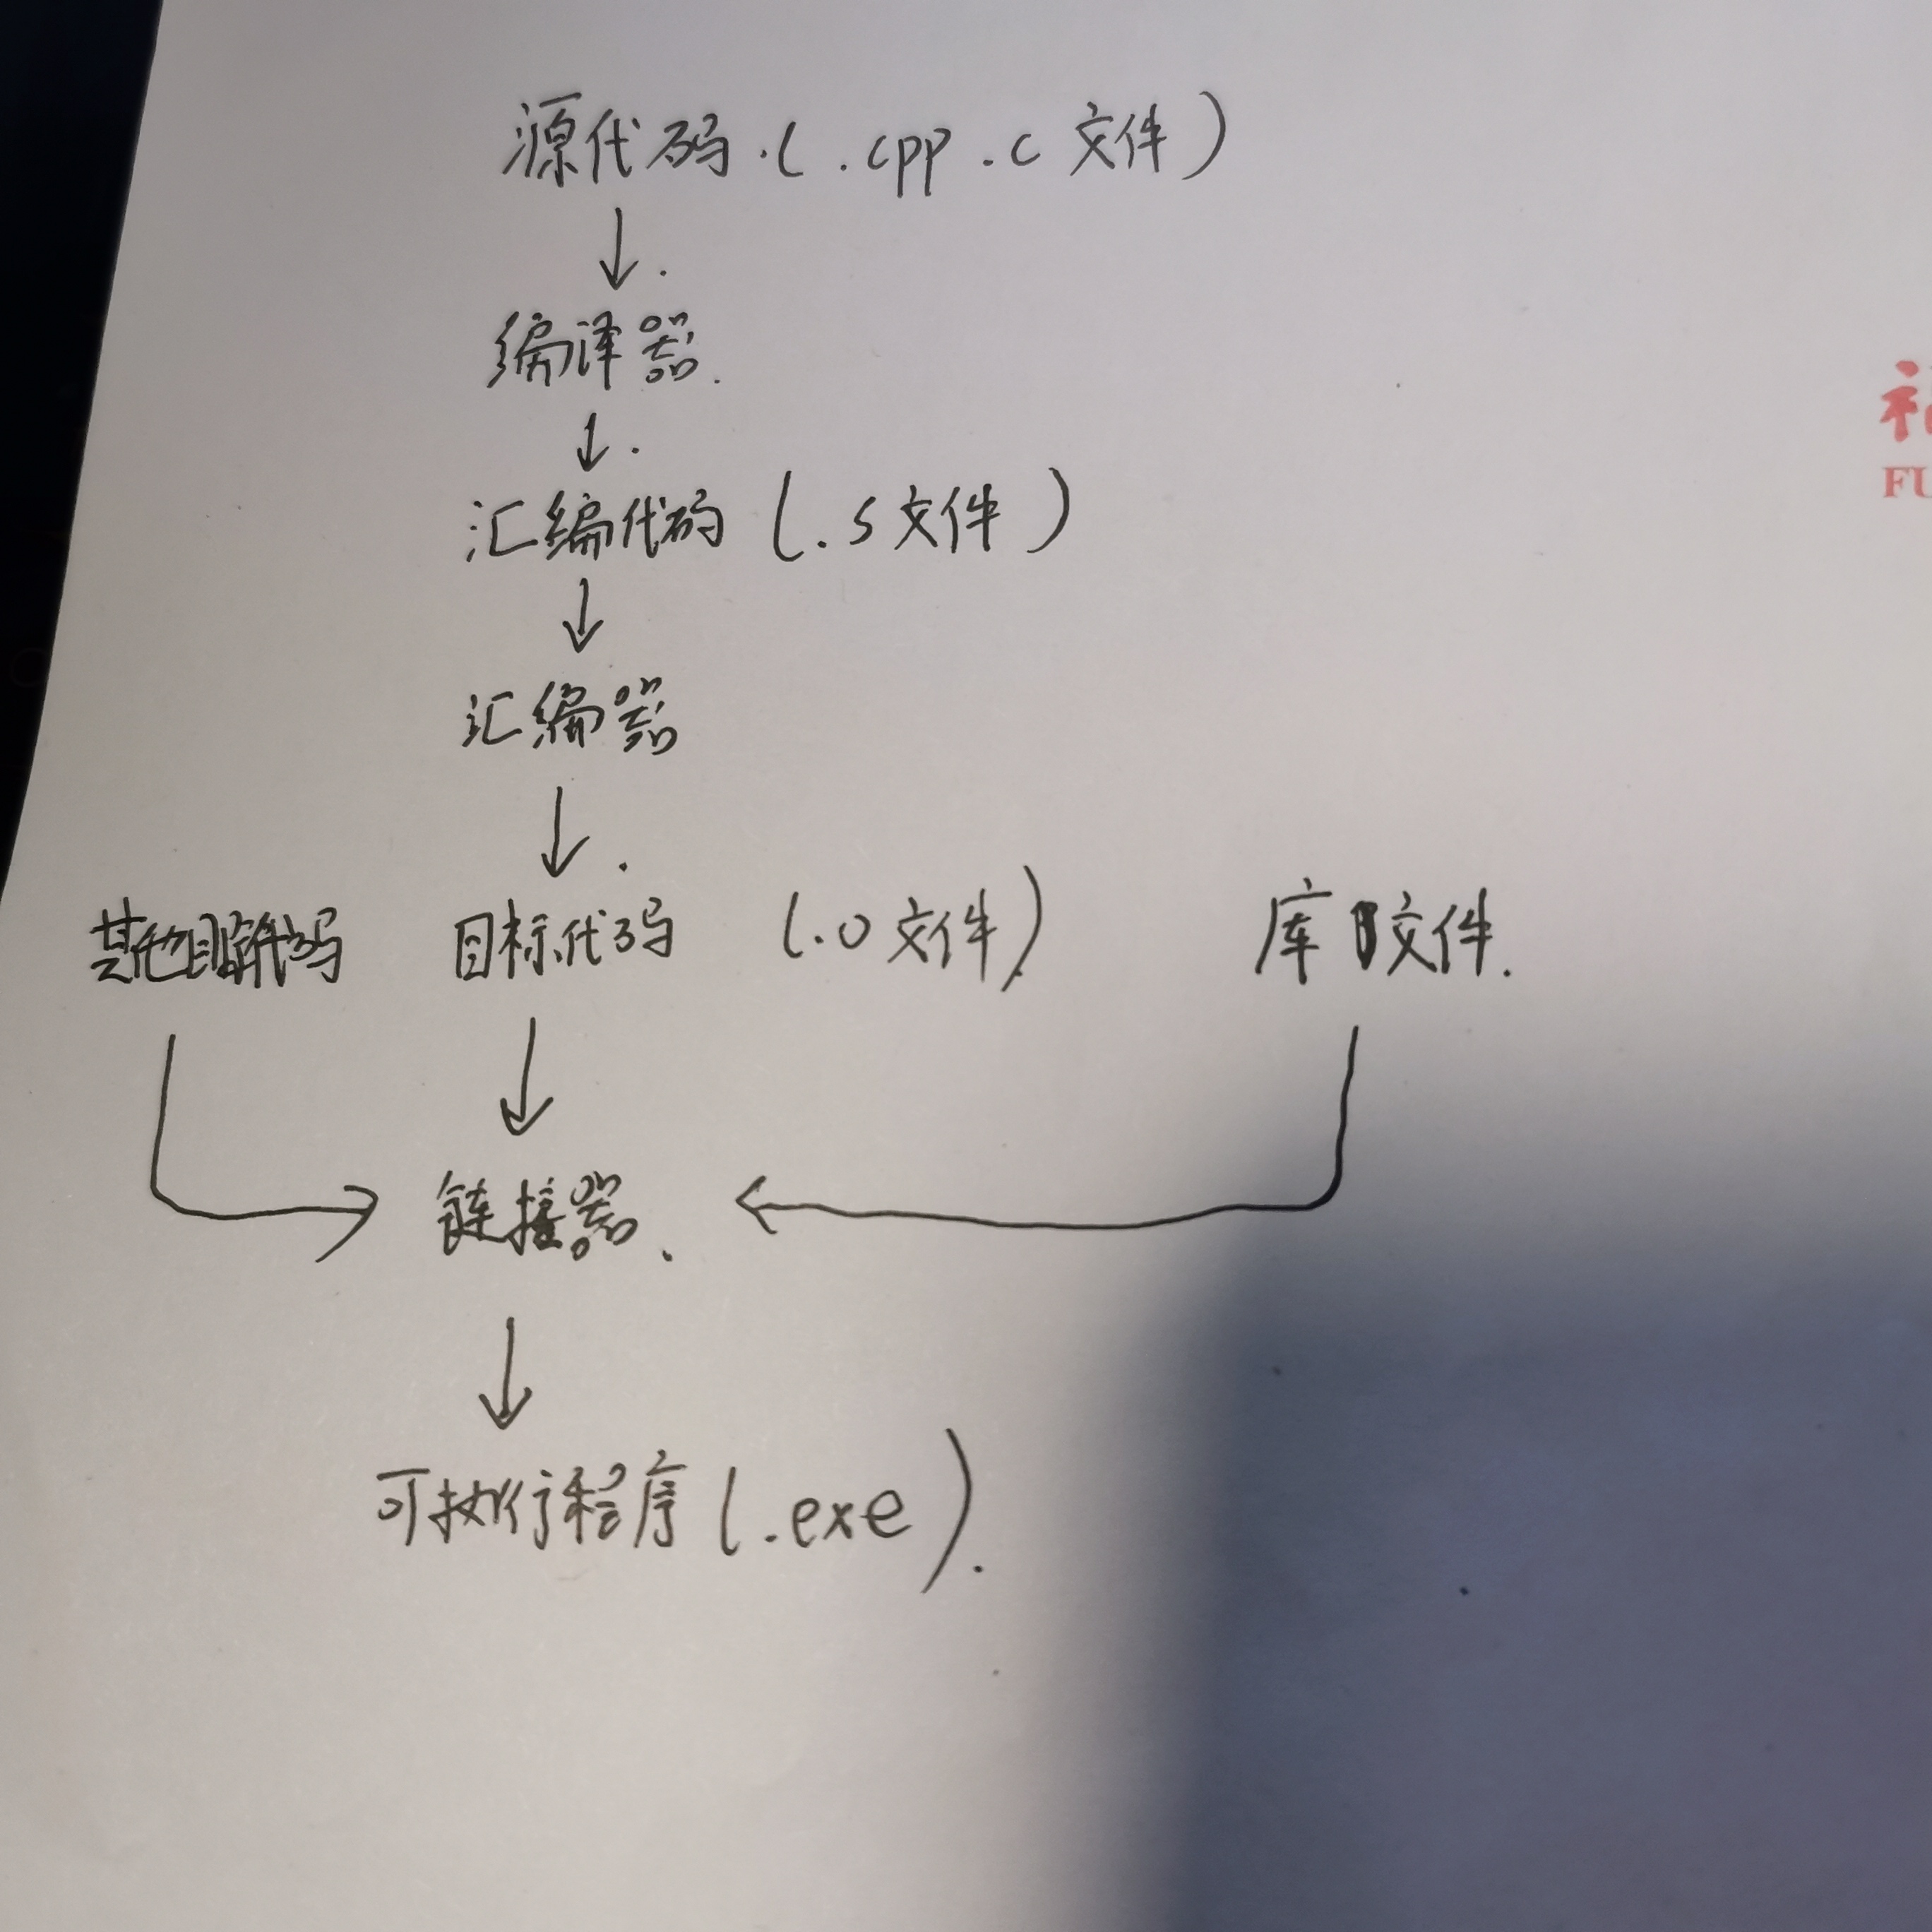 源代码.( .cpp .c 文件)
编译器.
汇编代码 (.s文件)
汇编器
其他目标代码 目标代码 (.o文件) 库文件.
链接器.
可执行程序(.exe).
FU